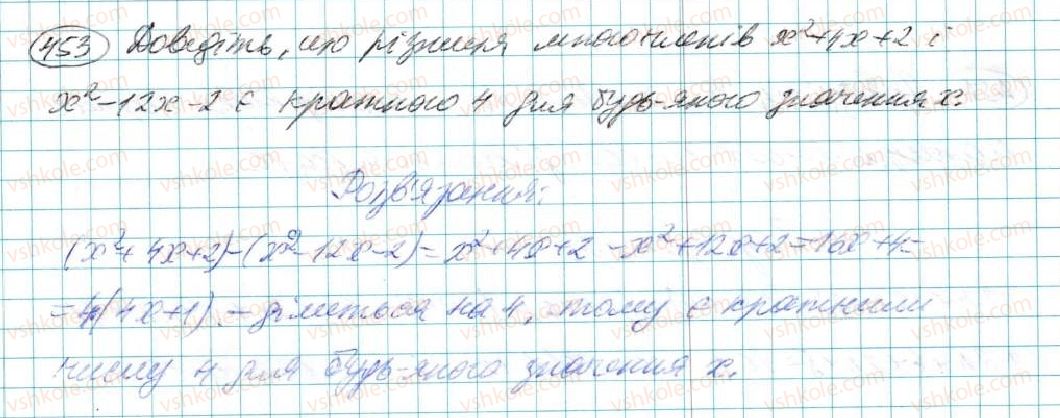 453 Доведіть, що різниця многочленів x²+4x+2 і
x²-12x-2 є кратною 4 для будь-якого значення x.
Розв'язання:
(x²+4x+2)-(x²-12x-2)=x²+4x+2-x²+12x+2=16x+4=
=4(4x+1) - ділиться на 4, тому є кратним
числу 4 для будь-якого значення x.